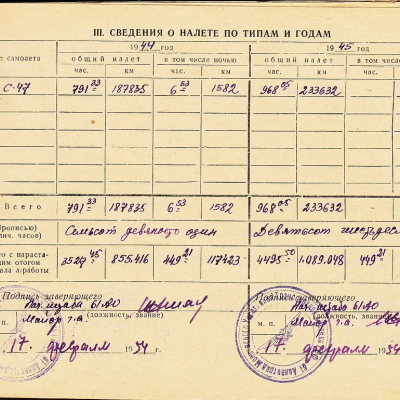 III. СВЕДЕНИЯ О НАЛЕТЕ ПО ТИПАМ И ГОДАМ
1944 год 1945 год
самолета общий налет в том числе ночью общий налет в том числе
час. км час. км час. км час.
С-47 791 33 187835 6 53 1582 968 05 233632 -
Всего 791 33 187835 6 53 1582 968 05 233632 -
Прописью) Семьсот девяносто один Девятьсот шестьдеся
лич. часов)
го с нараста- 3527 45 855.416 449 21 117423 4495 50 1.089.048 449 21
щим итогом
ала л/работы
Подпись заверяющего Подпись заверяющего
Нач. штаба 61 АО Нач. штаба 61 АО
(должность, звание) (должность, звание)
Майор т.а. м. п. Майор т.а.
17 февраля 1954 г. 17 февраля 1954